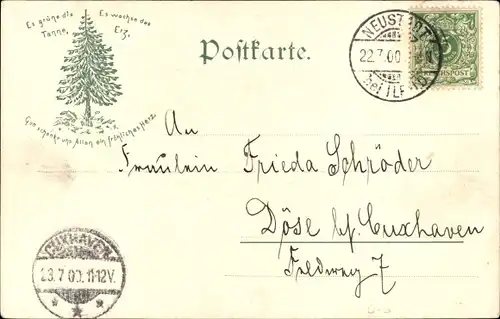 Es grüne die Tanne,
Es wachse das Erz,
Gott schenke uns Allen ein fröhliches Herz.
Postkarte.
NEUSTADT
22.7.00
bei ILFELD
REICHSPOST
An
Fräulein Frieda Schröder
Döse bf. Cuxhaven
Feldweg 7
CUXHAVEN
23.7.00.11-12V.